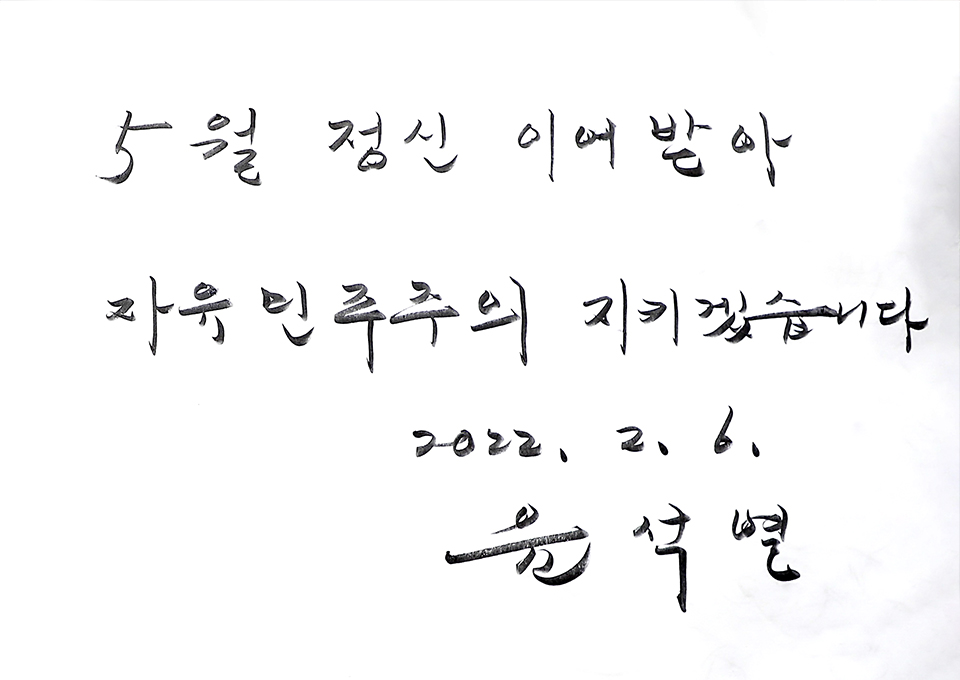 5월 정신 이어받아
자유민주주의 지키겠습니다
2022. 2. 6.
윤석열